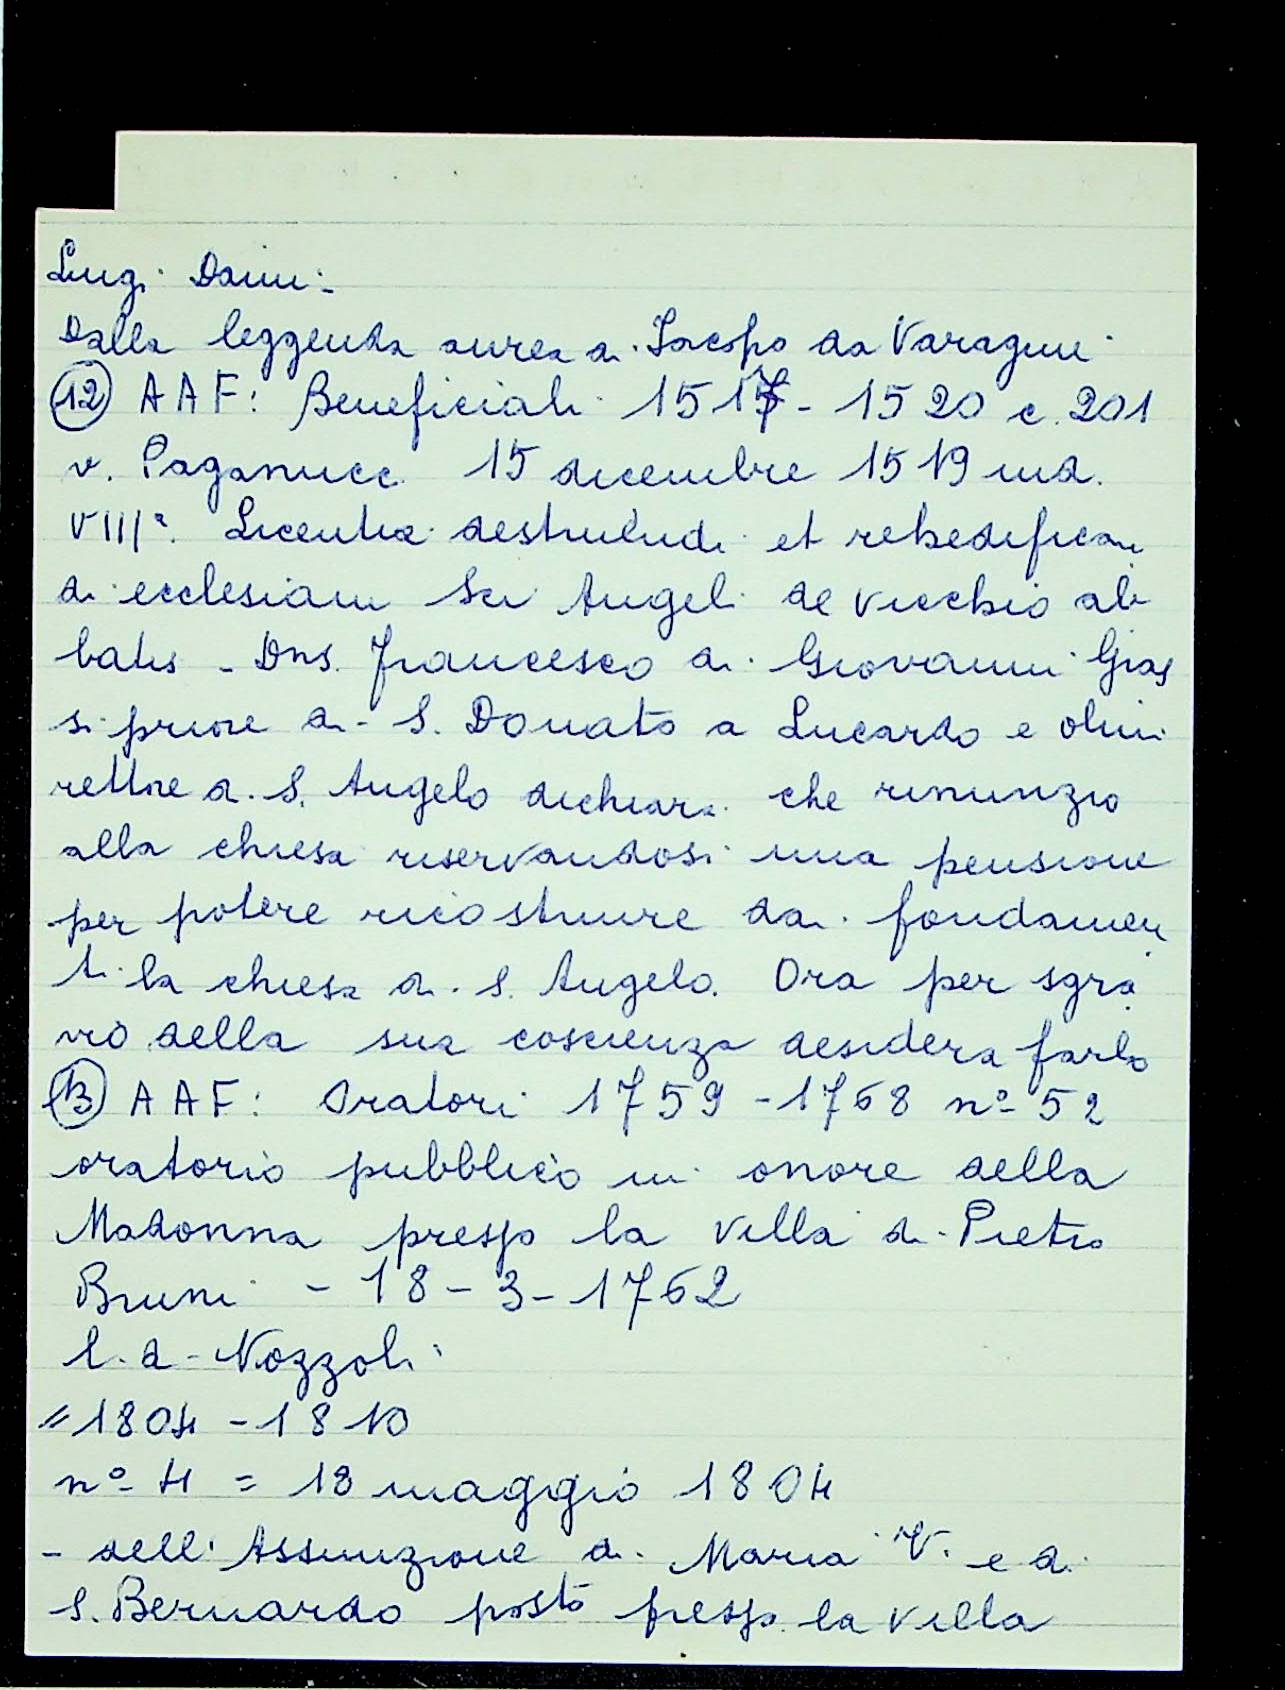 Luigi Dami -
Dalla leggenda aurea di Jacopo da Varagine
(12) AAF: Beneficiali 1517 - 1520 c. 201
v. Paganucci 15 dicembre 1519 ind.
VIIIª. Licentia destruendi et rehedifican
di ecclesiam Sci Angeli de Vicchio ab
batis - Dns. Francesco di Giovanni Gras
si priore di S. Donato a Lucardo e olim
rettore di S. Angelo dichiara che rinunziò
alla chiesa riservandosi una pensione
per potere ricostruire dai fondamen
ti la chiesa di S. Angelo. Ora per sgra
vio della sua coscienza desidera farlo
(13) AAF: Oratori 1759 - 1768 nº 52
oratorio pubblico in onore della
Madonna presso la villa di Pietro
Bruni - 18 - 3 - 1762
l. d. Nozzoli
" 1804 - 1810
nº 4 = 18 maggio 1804
- dell'Assunzione di Maria V. e di
S. Bernardo posto presso la villa